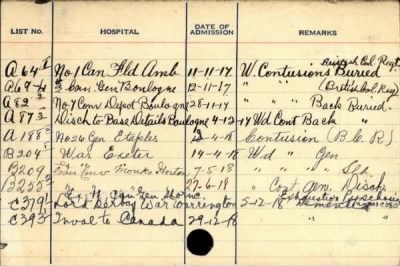 LIST NO. HOSPITAL DATE OF ADMISSION REMARKS
British Col. Regt
A 64 No 1 Can Fld Amb 11-11-17 W. Contusions Buried
A 69 Can. Gen Boulogne 12-11-17 (British Col. Reg)
A 82 No 7 Conv Depot Boulogne 28-11-17 " " Back Buried
A 87 Disch to Base Details Boulogne 4-12-17 Wd Cont Back
A 188 No 26 Gen Etaples 4-18 Contusion (B.C.R)
B 204 War Exeter 14-4-18 Wd " Gen
B 209 Can Conv Monks Horton 7-5-18 " " Sli
B 255 Can Gen 27-6-18 " Cont Gen. Disch
C 379 Lord Derby War Warrington 5-12-18
C 393 Inval to Canada 29-12-18